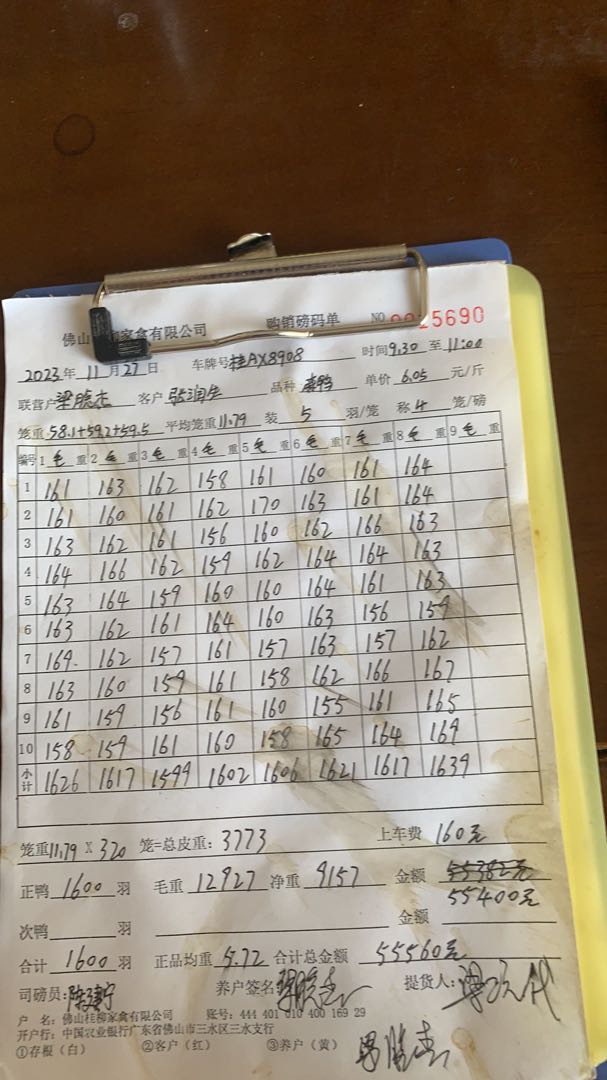 佛山桂柳家禽有限公司 购销磅码单 NO 0025690
2023年11月27日 车牌号桂AX8908 时间9.30至11:00
联营户梁晓杰 客户 张润生 品种 单价 6.05 元/斤
笼重58.1+59.2+59.5 平均笼重11.79 装 5 羽/笼 称4 笼/磅
编号 1毛重 2毛重 3毛重 4毛重 5毛重 6毛重 7毛重 8毛重 9毛重
1 161 163 162 158 161 160 161 164
2 161 160 161 162 170 163 161 164
3 163 162 161 156 160 162 166 163
4 164 166 162 159 162 164 164 163
5 163 164 159 160 160 164 161 163
6 163 162 161 164 160 163 156 159
7 169 162 157 161 157 163 157 162
8 163 160 159 161 158 162 166 167
9 161 159 156 161 160 155 161 165
10 158 159 161 160 158 165 164 169
小计 1626 1617 1599 1602 1606 1621 1617 1639
笼重11.79 X 320 笼=总皮重: 3773 上车费 160元
正鸭 1600 羽 毛重 12927 净重 9157 金额 55382元
55400元
次鸭 羽 金额
合计 1600 羽 正品均重 5.72 合计总金额 55560元
司磅员: 养户签名 梁晓杰 提货人:
户 名: 佛山桂柳家禽有限公司 账号: 444 401 010 400 169 29
开户行: 中国农业银行广东省佛山市三水区三水支行
①存根(白) ②客户(红) ③养户(黄) 梁晓杰